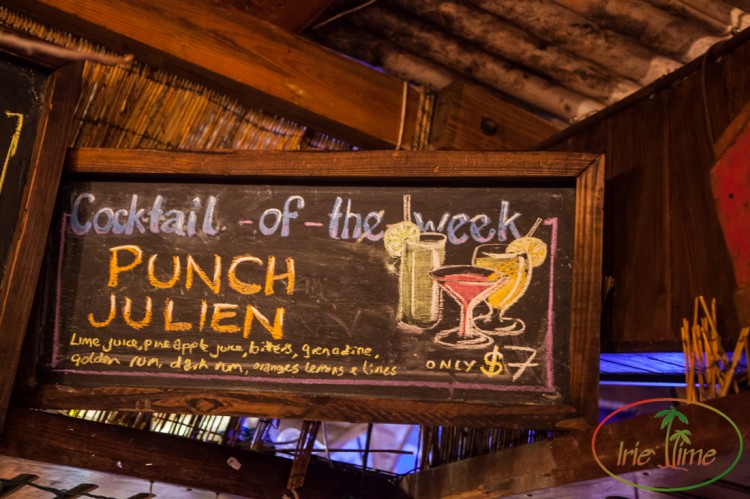 Cocktail -of- the week
PUNCH
JULIEN
Lime juice, pine apple juice, bitters, grenadine,
golden rum, dark rum, oranges lemons & limes
ONLY $7
Irie Time